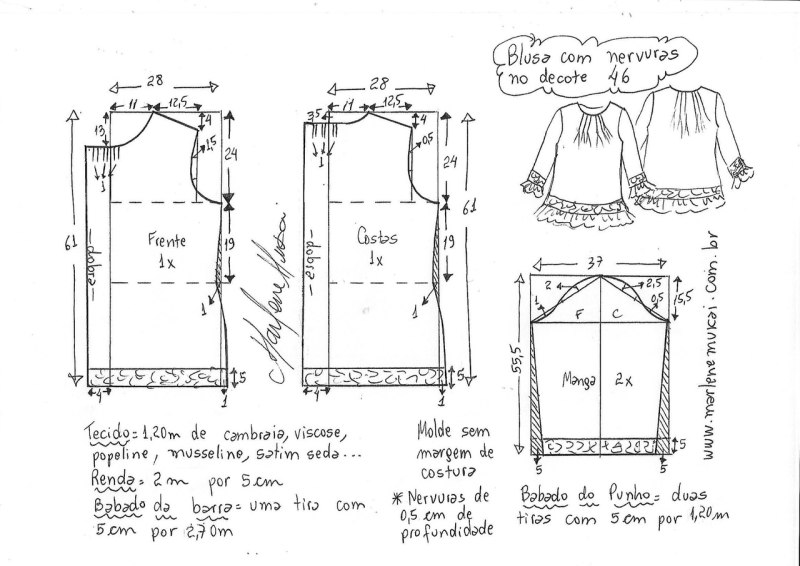 Blusa com nervuras
no decote 46
28
11
12,5
13
4
1,5
1
24
61
19
Frente
1x
dobra
1
5
4
1
28
3,5
11
12,5
4
0,5
1
24
61
19
Costas
1x
dobra
1
5
4
1
Marlene Mukai
37
2
2,5
1
0,5
15,5
F
C
55,5
Manga 2x
5
5
5
www.marlenemukai.com.br
Tecido = 1,20m de cambraia, viscose,
popeline, musseline, satim seda...
Renda = 2m por 5cm
Babado da barra = uma tira com
5cm por 2,70m
Molde sem
margem de
costura
* Nervuras de
0,5 cm de
profundidade
Babado do Punho = duas
tiras com 5cm por 1,20m